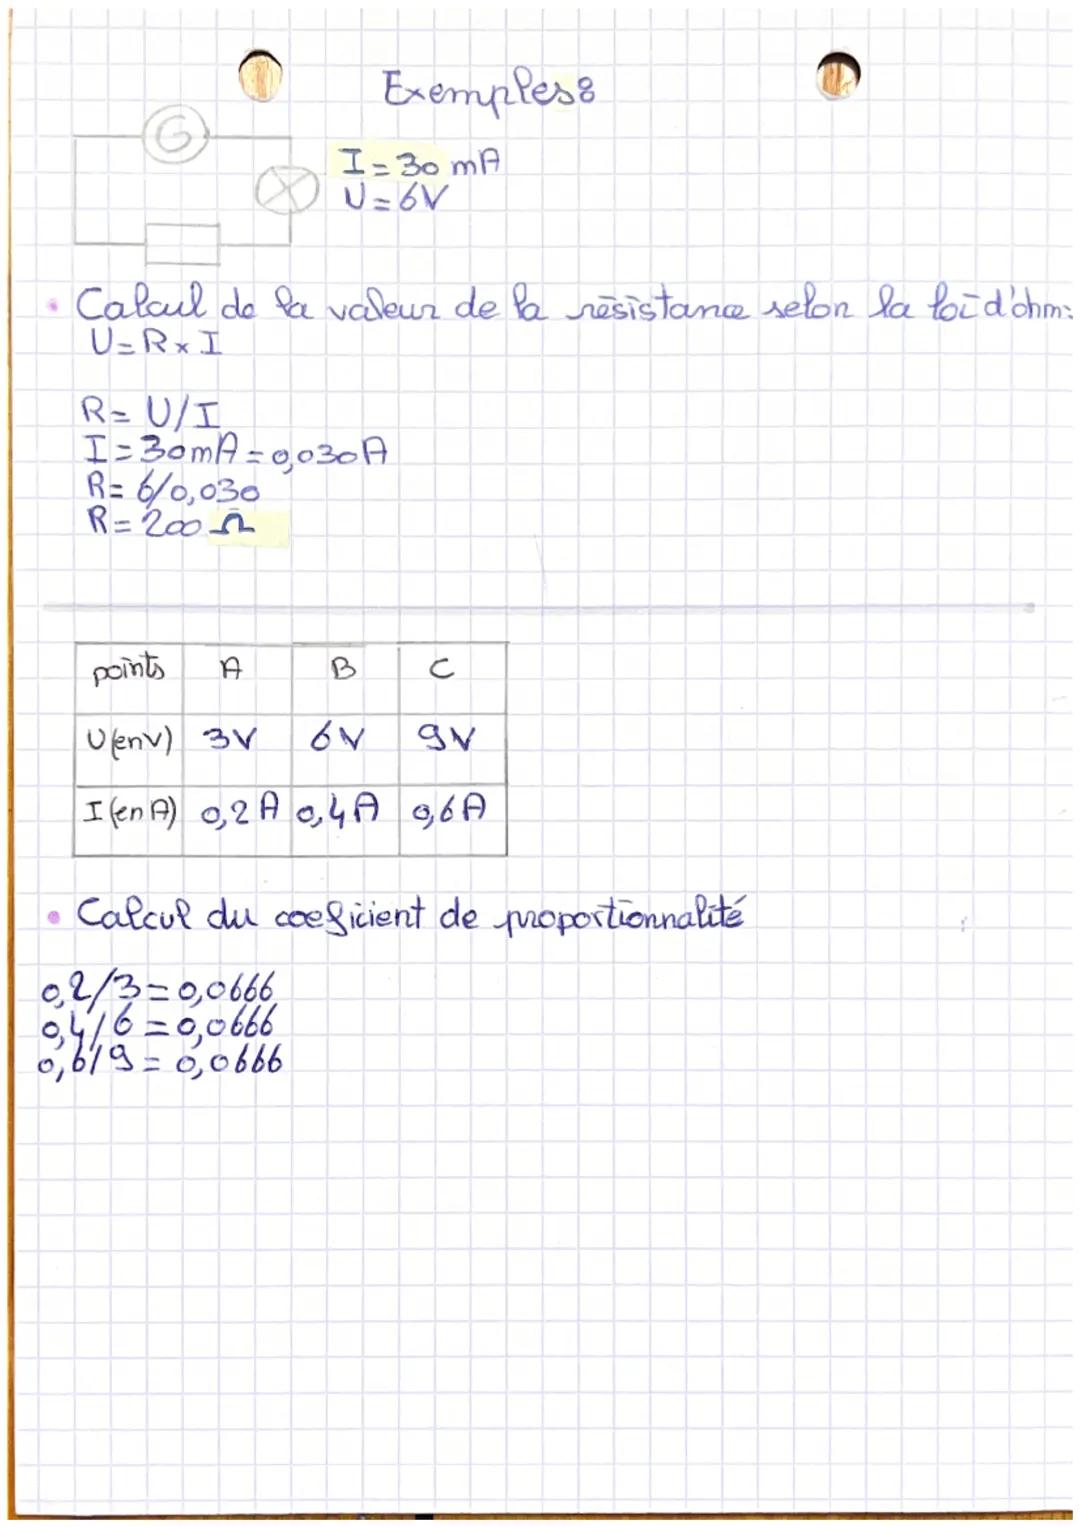 Exemples:
G
I = 30 mA
U = 6V
• Calcul de la valeur de la résistance selon la loi d'ohm:
U = R x I
R = U/I
I = 30mA = 0,030A
R = 6/0,030
R = 200 Ω
points A B C
U(en V) 3V 6V 9V
I (en A) 0,2A 0,4A 0,6A
• Calcul du coeficient de proportionnalité
0,2/3 = 0,0666
0,4/6 = 0,0666
0,6/9 = 0,0666